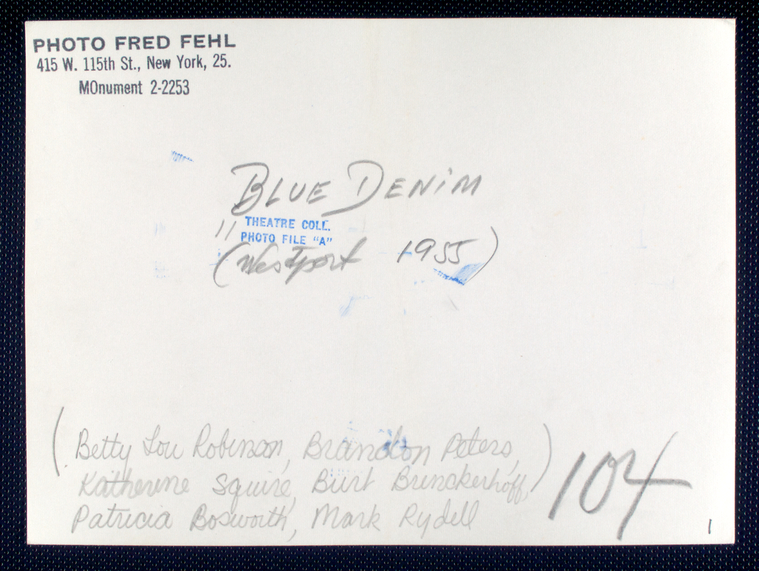 PHOTO FRED FEHL
415 W. 115th St., New York, 25.
MOnument 2-2253
BLUE DENiM
THEATRE COLL.
PHOTO FILE "A"
(Westport 1955)
(Betty Lou Robinson, Brandon Peters,
Katherine Squire, Burt Brinckerhoff,)
Patricia Bosworth, Mark Rydell
104
1